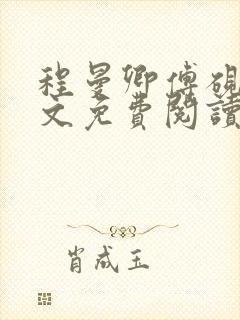 程曼卿傅硯
文免費閱讀
肖成玉